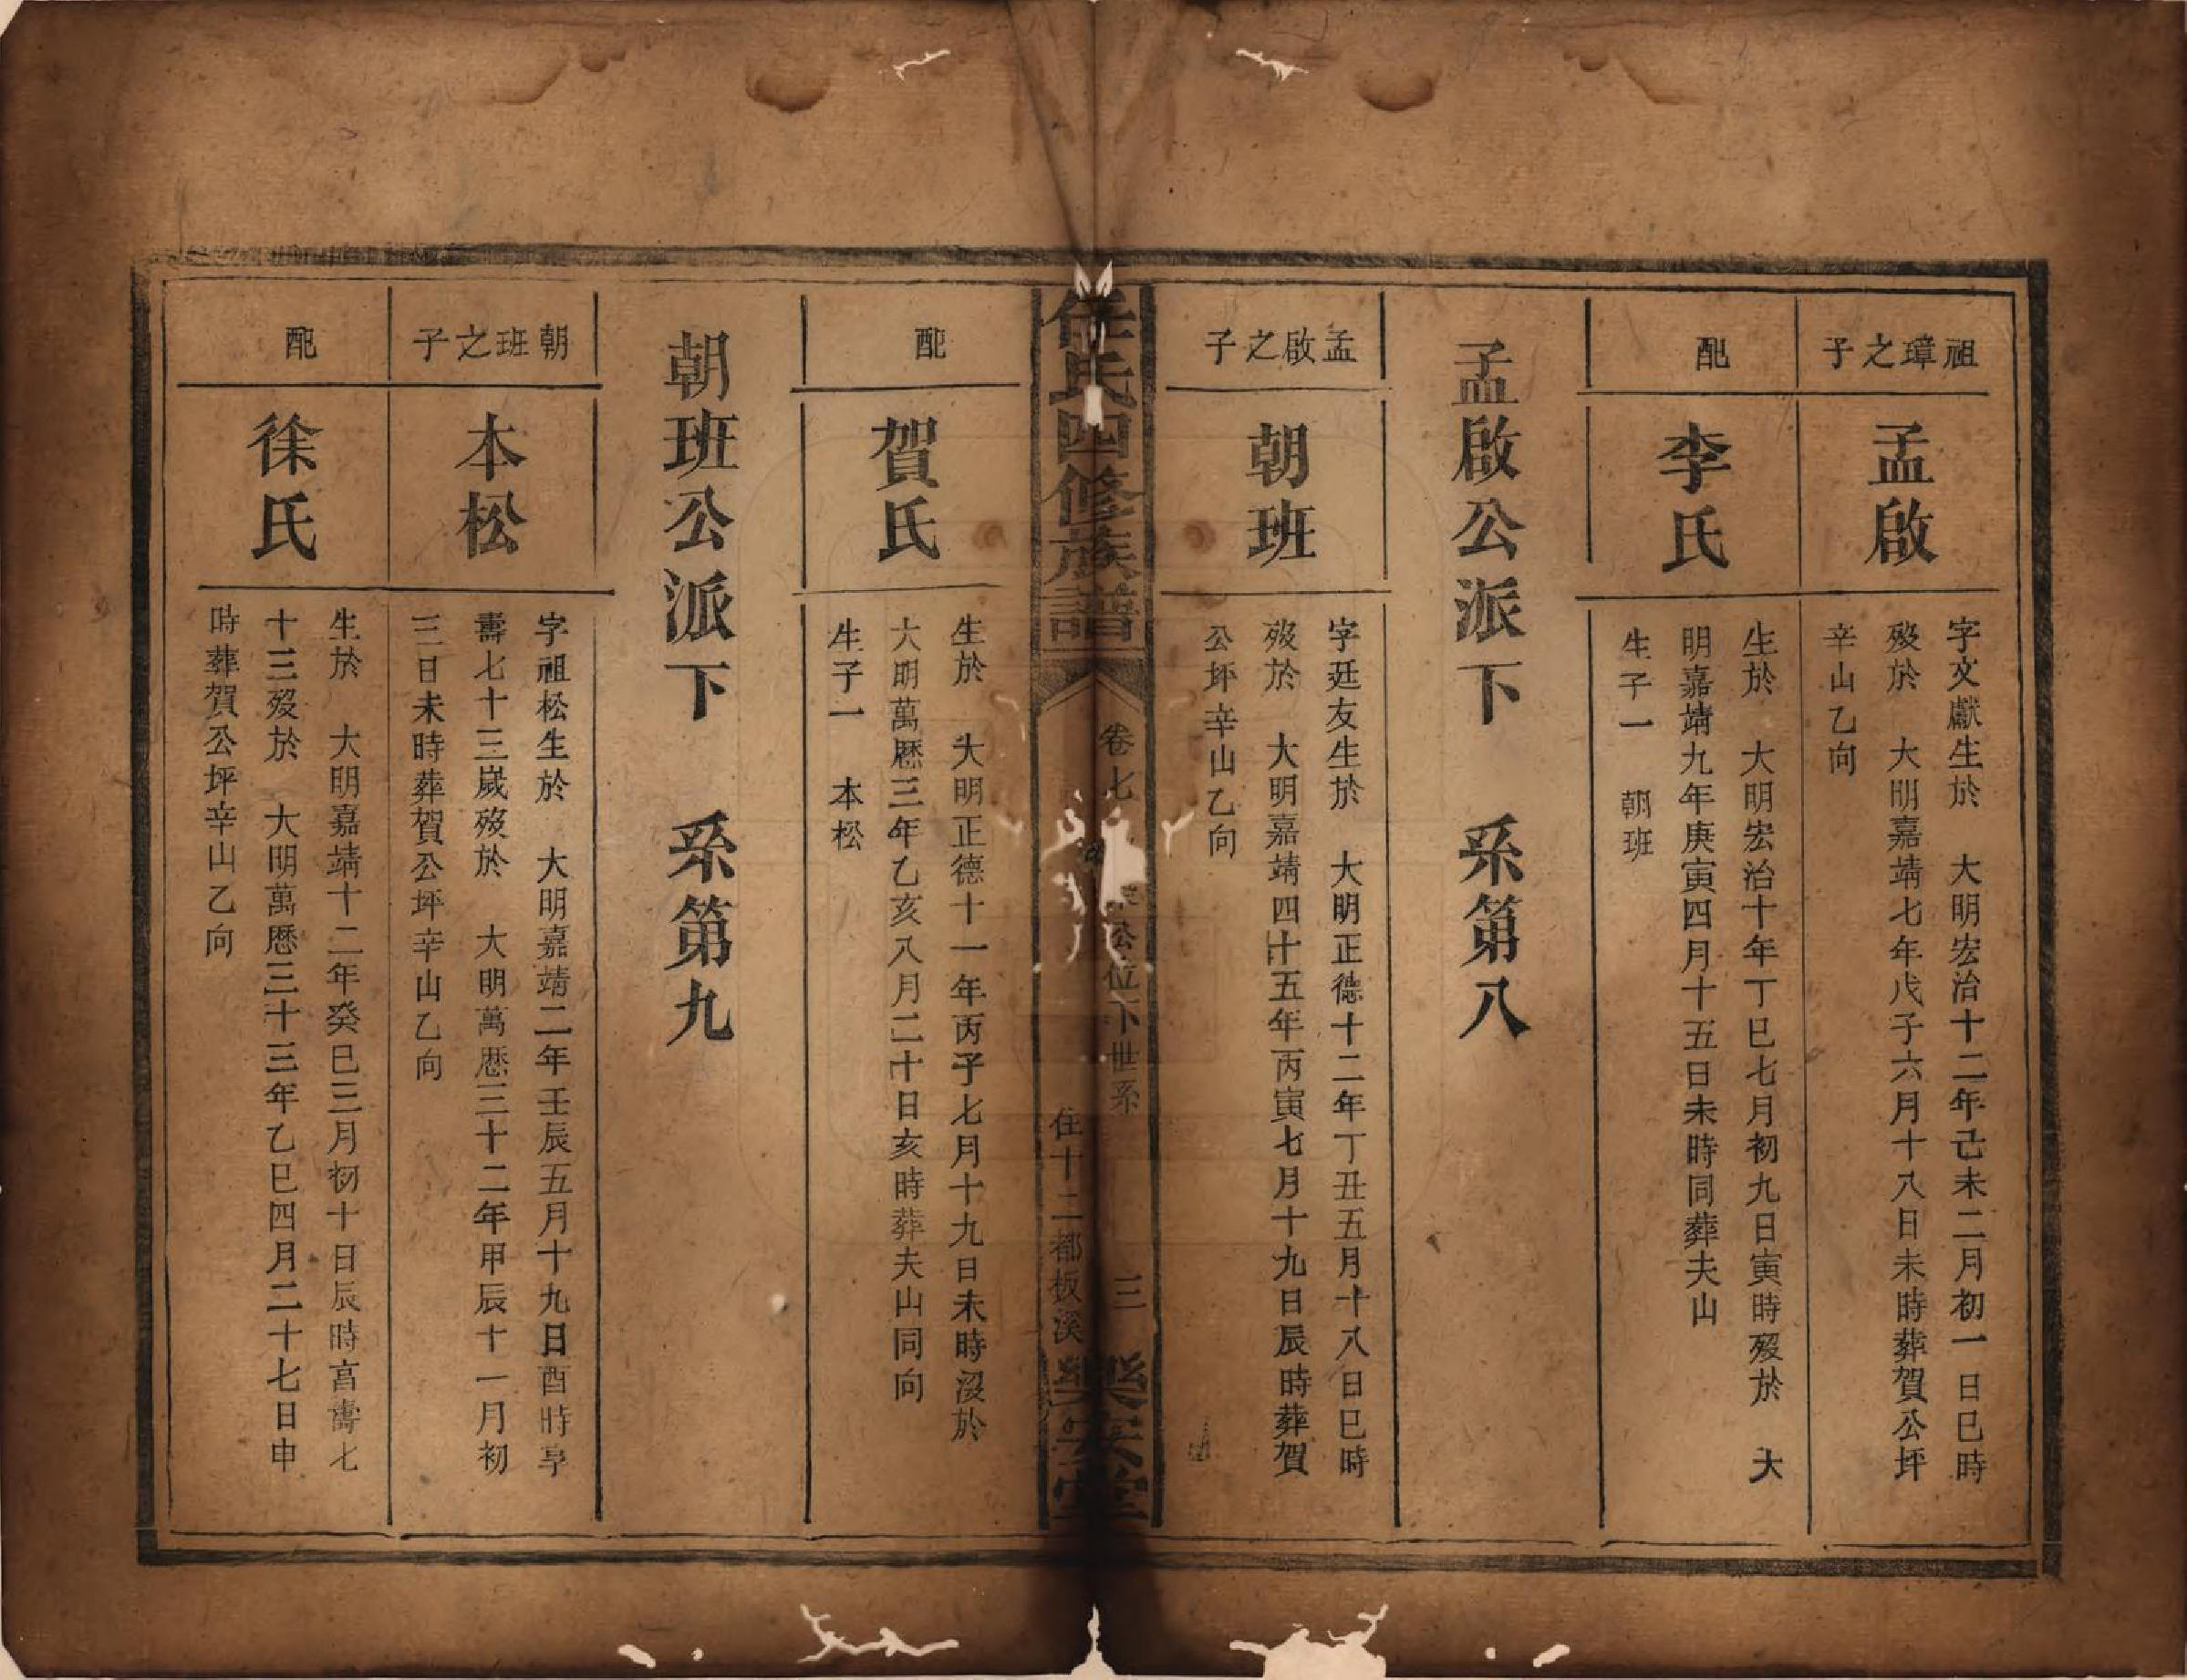 祖璋之子
孟啟
字文獻生於　大明宏治十二年己未二月初一日巳時
殁於　大明嘉靖七年戊子六月十八日未時葬賀公坪
辛山乙向
配
李氏
生於　大明宏治十年丁巳七月初九日寅時殁於　大
明嘉靖九年庚寅四月十五日未時同葬夫山
生子一　朝班
孟啟公派下　系第八
孟啟之子
朝班
字廷友生於　大明正德十二年丁丑五月十八日巳時
殁於　大明嘉靖四十五年丙寅七月十九日辰時葬賀
公坪辛山乙向
任氏四修族譜
卷七
公位下世系
三
住十二都板溪
樂安堂
配
賀氏
生於　大明正德十一年丙子七月十九日未時沒於
大明萬歷三年乙亥八月二十日亥時葬夫山同向
生子一　本松
朝班公派下　系第九
朝班之子
本松
字祖松生於　大明嘉靖二年壬辰五月十九日酉時享
壽七十三歲殁於　大明萬歷三十二年甲辰十一月初
三日未時葬賀公坪辛山乙向
配
徐氏
生於　大明嘉靖十二年癸巳三月初十日辰時高壽七
十三殁於　大明萬歷三十三年乙巳四月二十七日申
時葬賀公坪辛山乙向